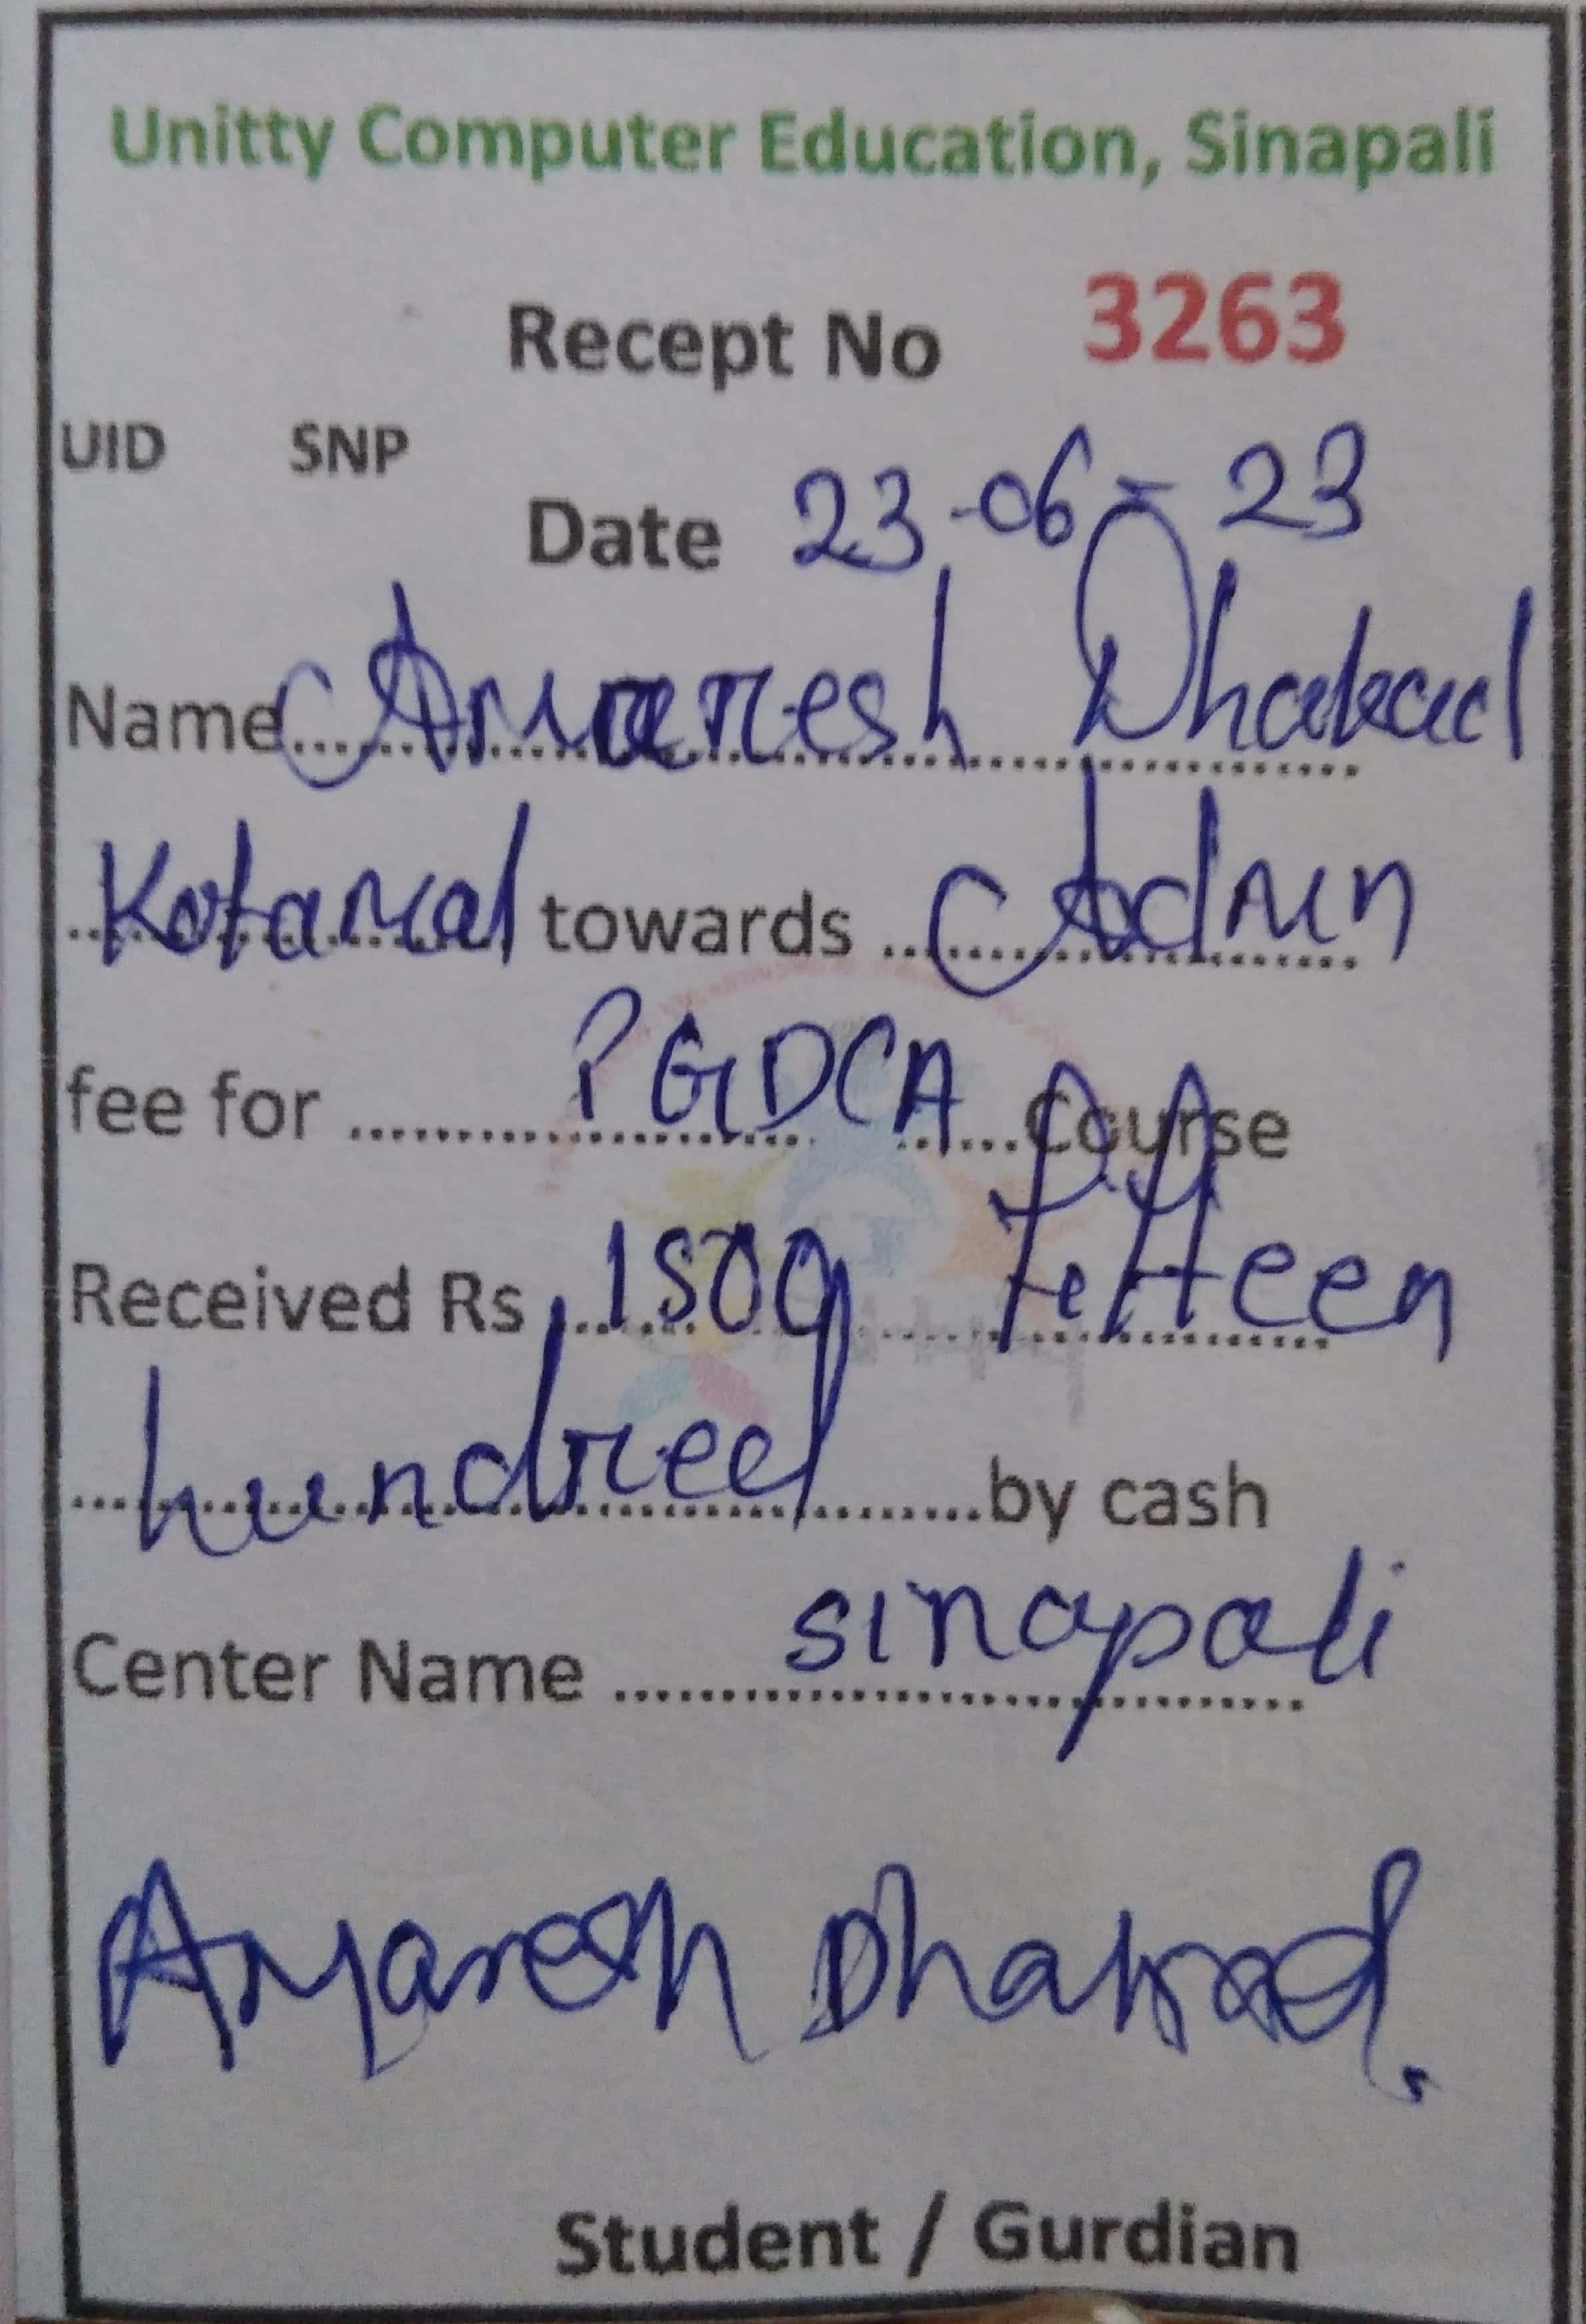 Unitty Computer Education, Sinapali
Recept No 3263
UID SNP
Date 23-06-23
Name Amaresh Dhakad
Kotamal towards Admn
fee for PGDCA Course
Received Rs 1500 Fifteen
hundred by cash
Center Name sinapali
Amaresh Dhakad.
Student / Gurdian